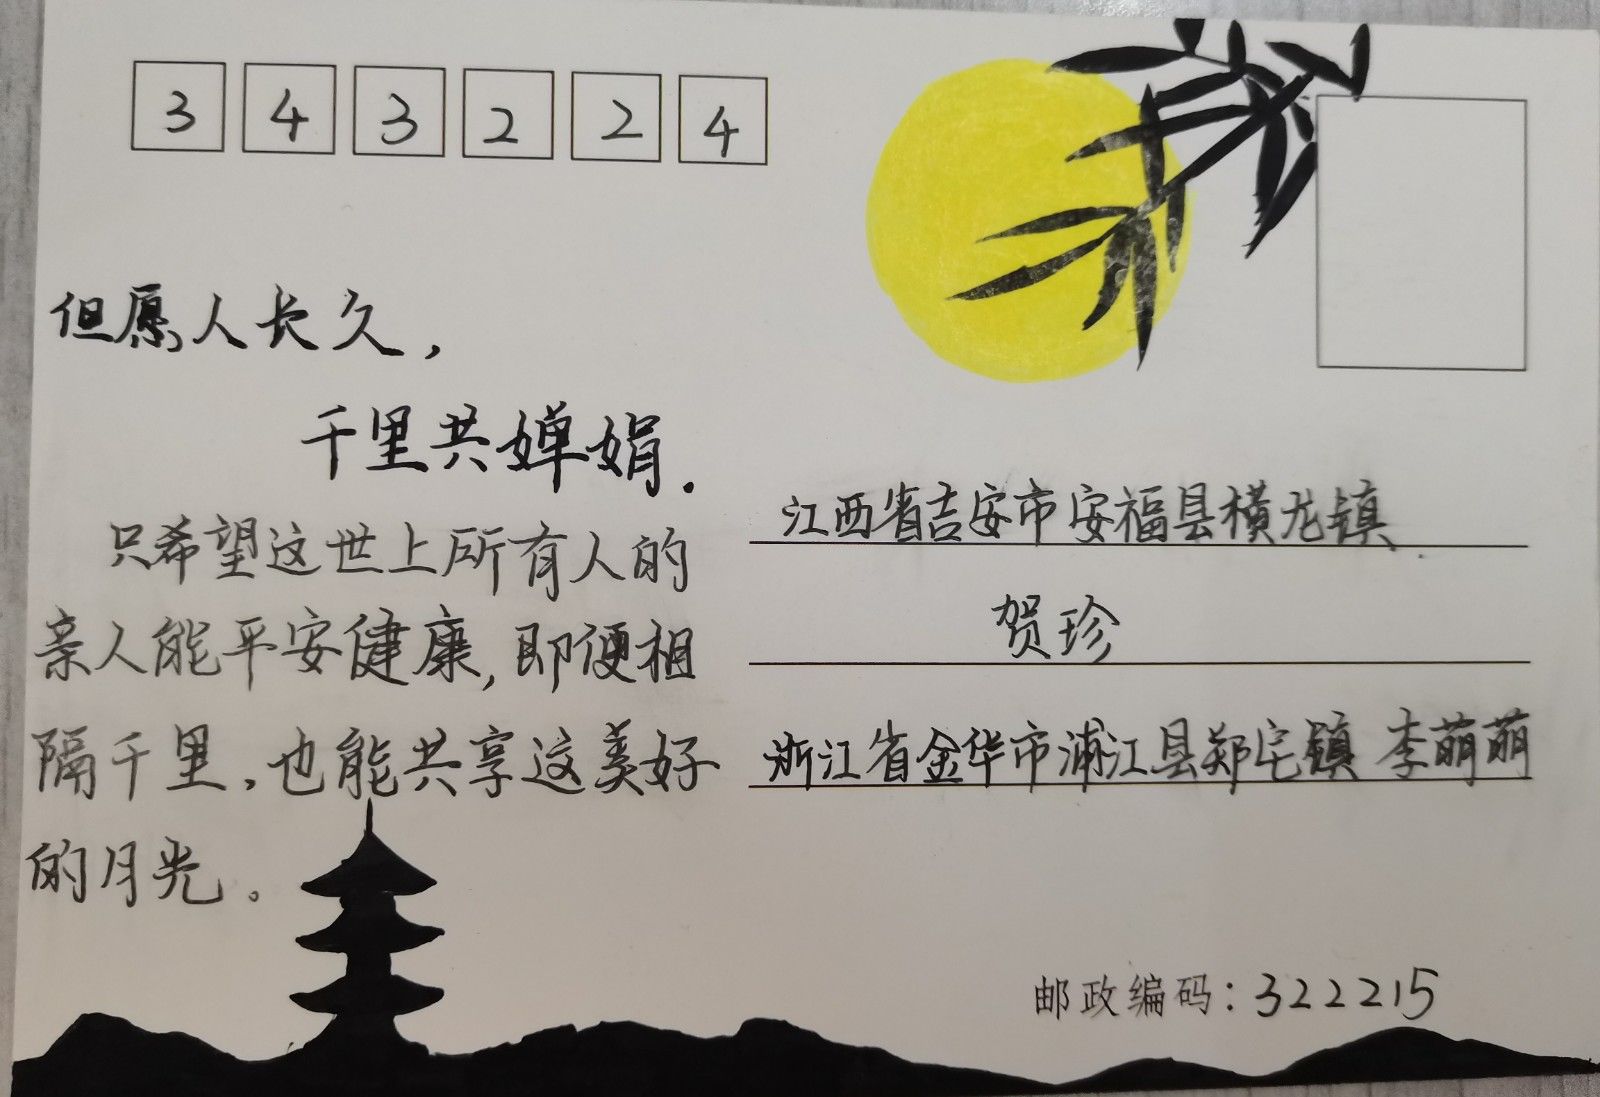 343224
但愿人长久，
千里共婵娟.
只希望这世上所有人的
亲人能平安健康,即便相
隔千里,也能共享这美好
的月光。
江西省吉安市安福县横龙镇
贺珍
浙江省金华市浦江县郑宅镇 李萌萌
邮政编码：322215